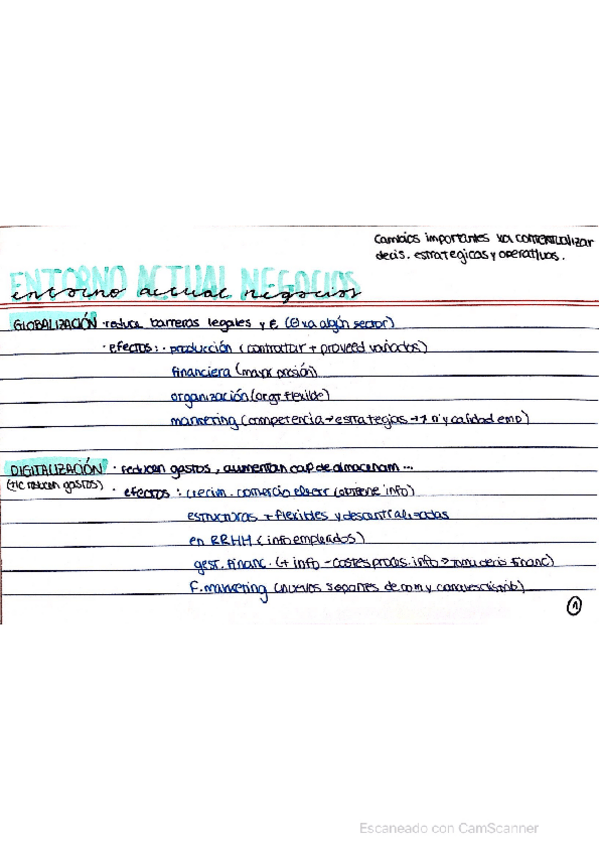 Cambios importantes xa contextualizar
decis. estrategicas y operativas.
ENTORNO ACTUAL NEGOCIOS
entorno actual negocios
GLOBALIZACIÓN · reduce barreras legales y € (⊖ xa algún sector)
· efectos: · producción (contractar + proveed variados)
financiera (mayor presión)
organización (orgz flexible)
marketing (competencia → estrategias → ↑ nº y calidad emp)
DIGITALIZACIÓN · reducen gastos, aumentan cap de almacenam...
(TIC reducen gastos) · efectos: crecim. comercio elect (obtiene info)
estructuras + flexibles y descentralizadas
en RRHH (info empleados)
gest. financ. (+ info - costes proces. info → toma decis financ)
F. marketing (nuevos soportes de com y canales distrib)
1
Escaneado con CamScanner